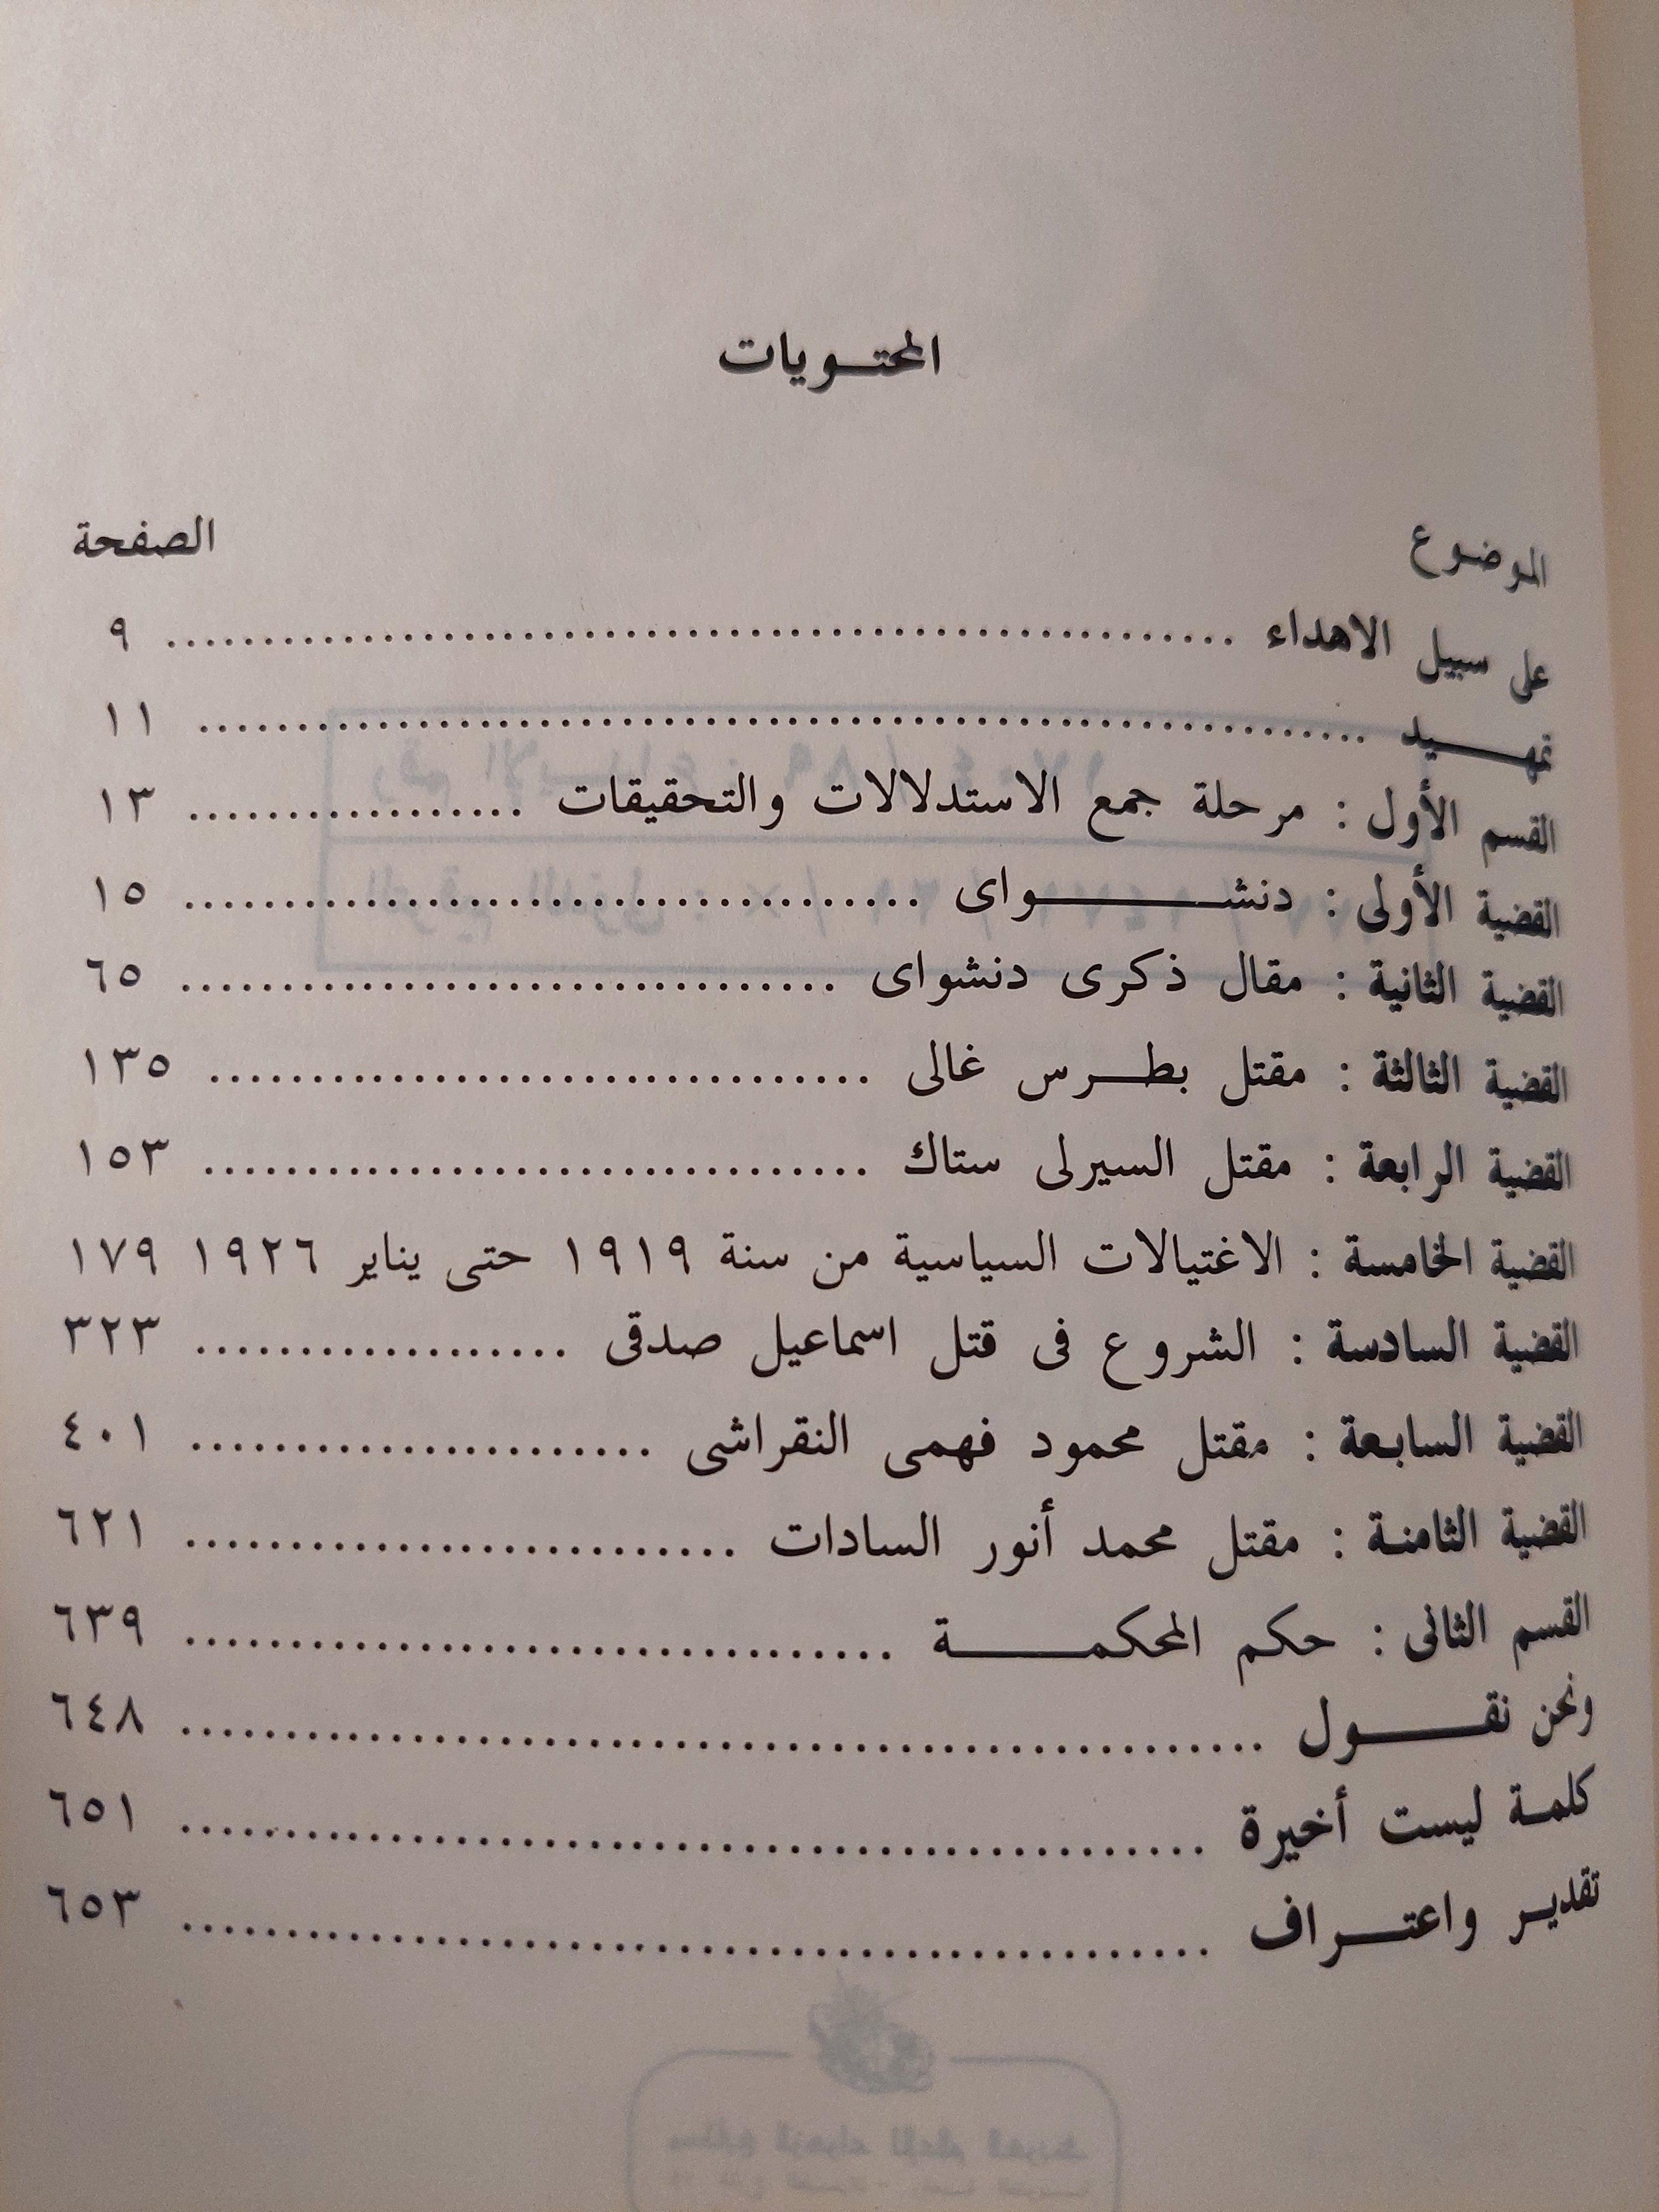 المحتويات
الموضوع الصفحة
على سبيل الاهداء ........................................ ٩
تمهيد ........................................ ١١
القسم الأول : مرحلة جمع الاستدلالات والتحقيقات ................. ١٣
القضية الأولى : دنشواى ........................................ ١٥
القضية الثانية : مقال ذكرى دنشواى ................................. ٦٥
القضية الثالثة : مقتل بطرس غالى ................................. ١٣٥
القضية الرابعة : مقتل السيرلى ستاك ................................. ١٥٣
القضية الخامسة : الاغتيالات السياسية من سنة ١٩١٩ حتى يناير ١٩٢٦ ١٧٩
القضية السادسة : الشروع فى قتل اسماعيل صدقى .................. ٣٢٣
القضية السابعة : مقتل محمود فهمى النقراشى ....................... ٤٠١
القضية الثامنة : مقتل محمد أنور السادات ........................... ٦٢١
القسم الثانى : حكم المحكمة ................................... ٦٣٩
ونحن نقول ........................................ ٦٤٨
كلمة ليست أخيرة ........................................ ٦٥١
تقدير واعتراف ........................................ ٦٥٣